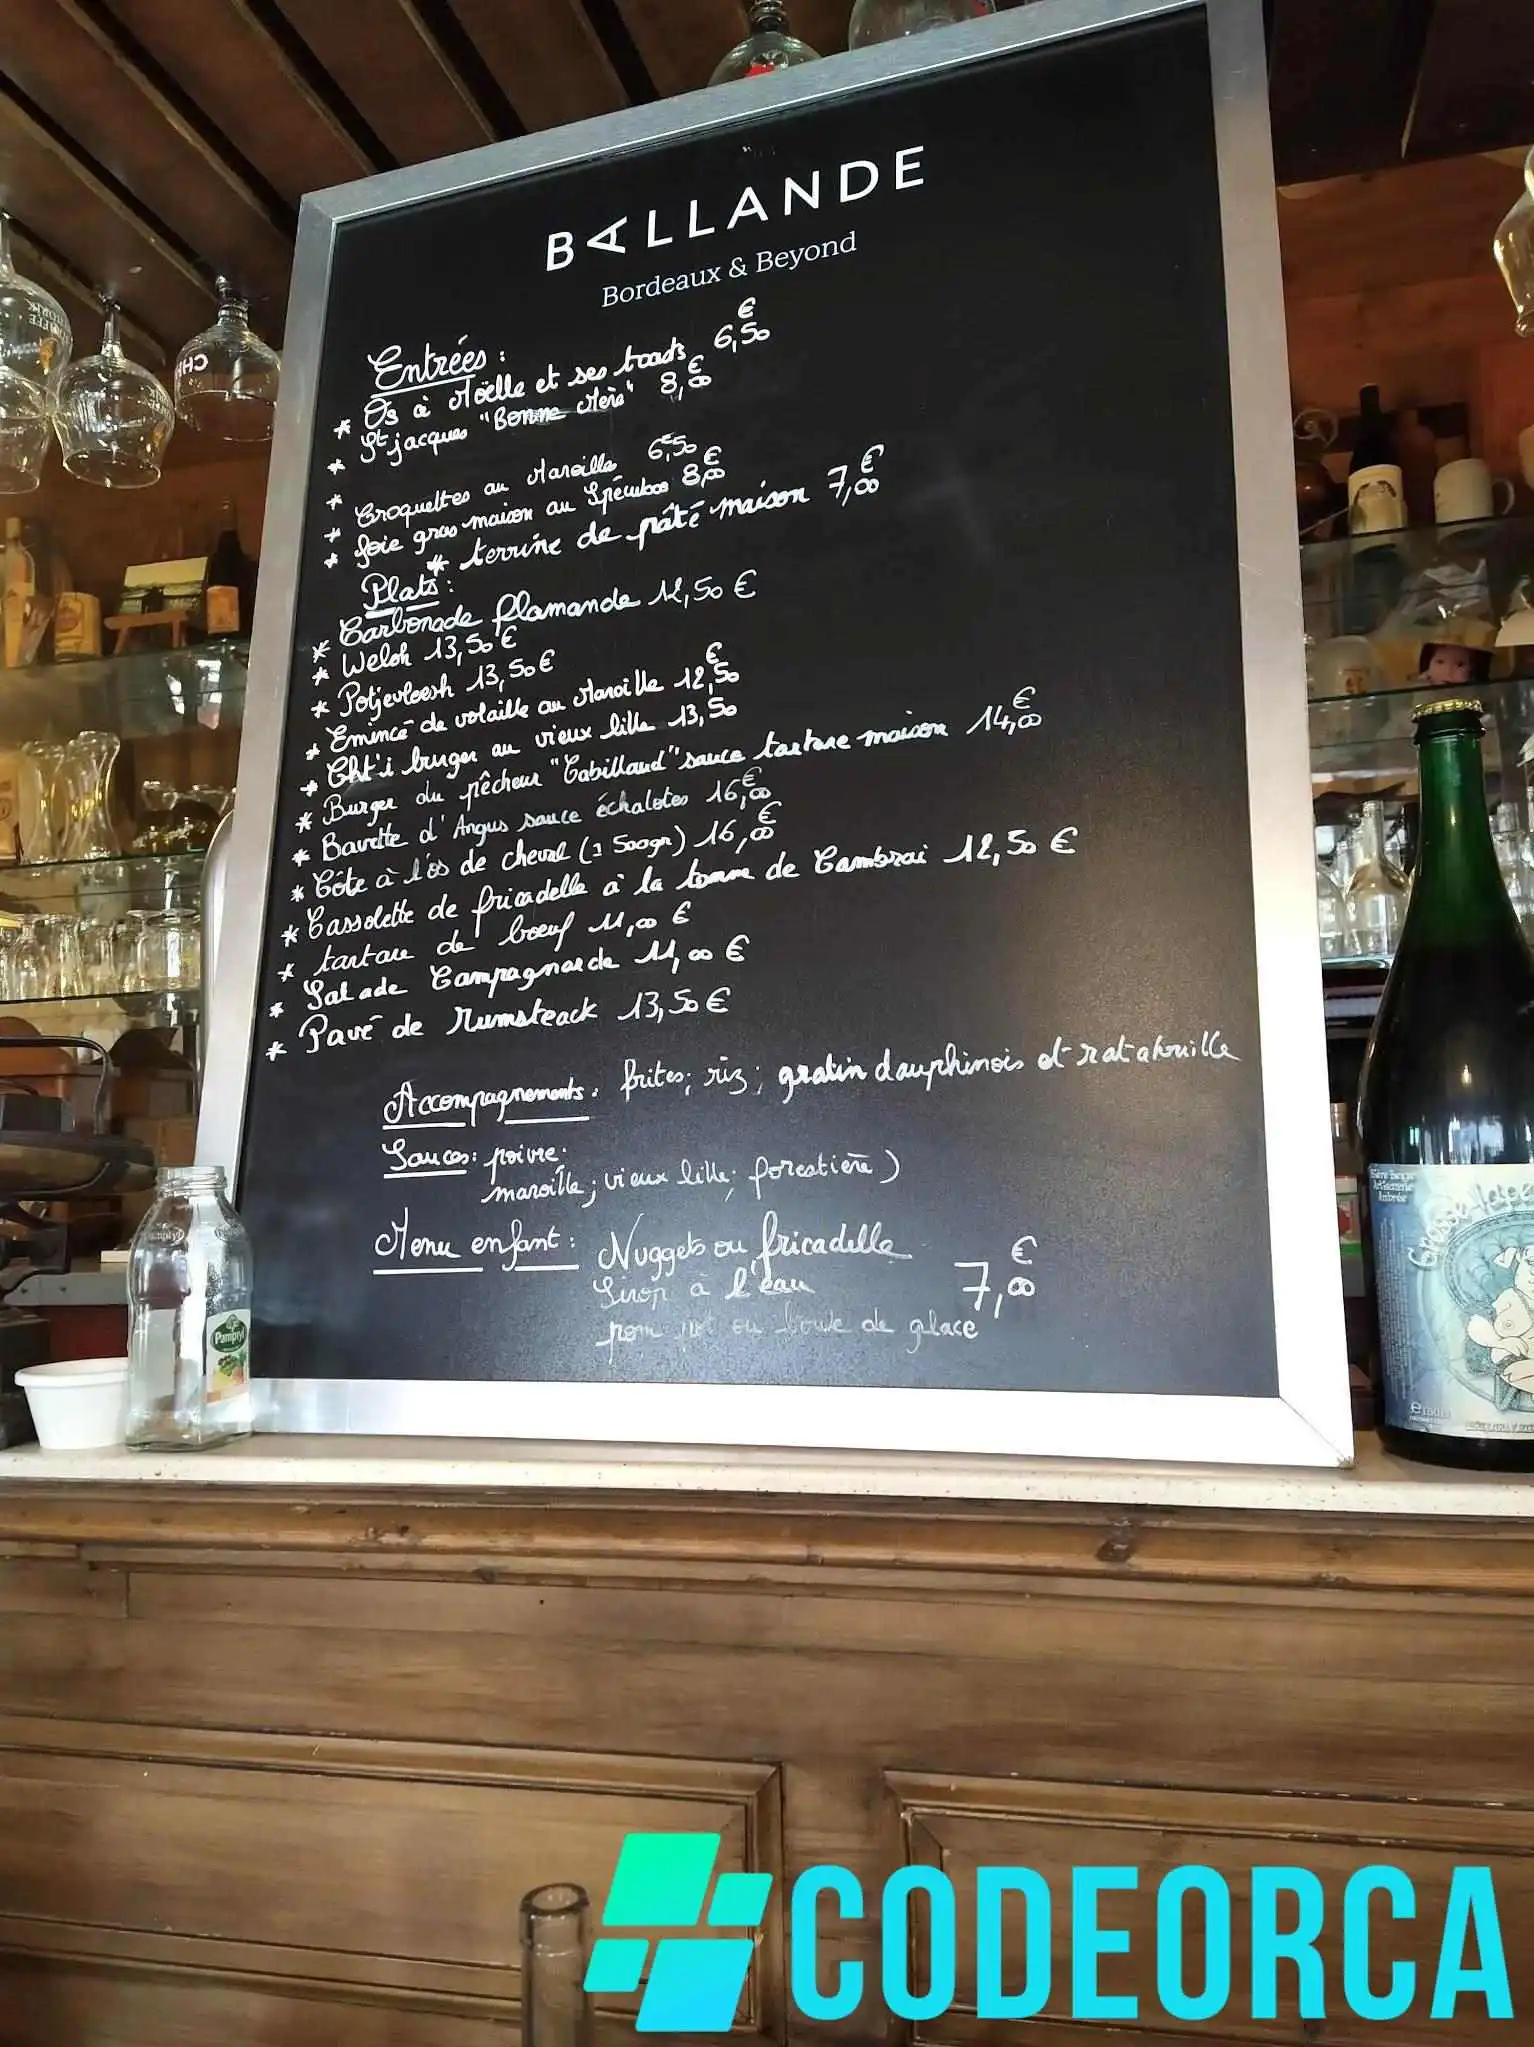 BALLANDE
Bordeaux & Beyond
Entrées :
* Os à Moëlle et ses toasts 6,50 €
* St jacques "Bonne Mère" 8,00 €
* Croquettes au Maroille 6,50 €
* Foie gras maison au Spéculoos 8,00 €
* terrine de pâté maison 7,00 €
Plats :
* Carbonade flamande 12,50 €
* Welsh 13,50 €
* Potjevleesh 13,50 €
* Emincé de volaille au Maroille 12,50 €
* Cht'i burger au vieux lille 13,50
* Burger du pêcheur "Cabillaud" sauce tartare maison 14,00 €
* Bavette d'Angus sauce échalotes 16,00 €
* Côte à l'os de cheval (± 500gr) 16,00 €
* Cassolette de fricadelle à la tomme de Cambrai 12,50 €
* tartare de boeuf 11,00 €
* Salade Campagnarde 11,00 €
* Pavé de Rumsteack 13,50 €
Accompagnements : frites; riz; gratin dauphinois et ratatouille
Sauces : poivre.
maroille; vieux lille; forestière)
Menu enfant : Nuggets ou fricadelle
Sirop à l'eau 7,00 €
pom pot ou boule de glace
Pampryl
CODEORCA